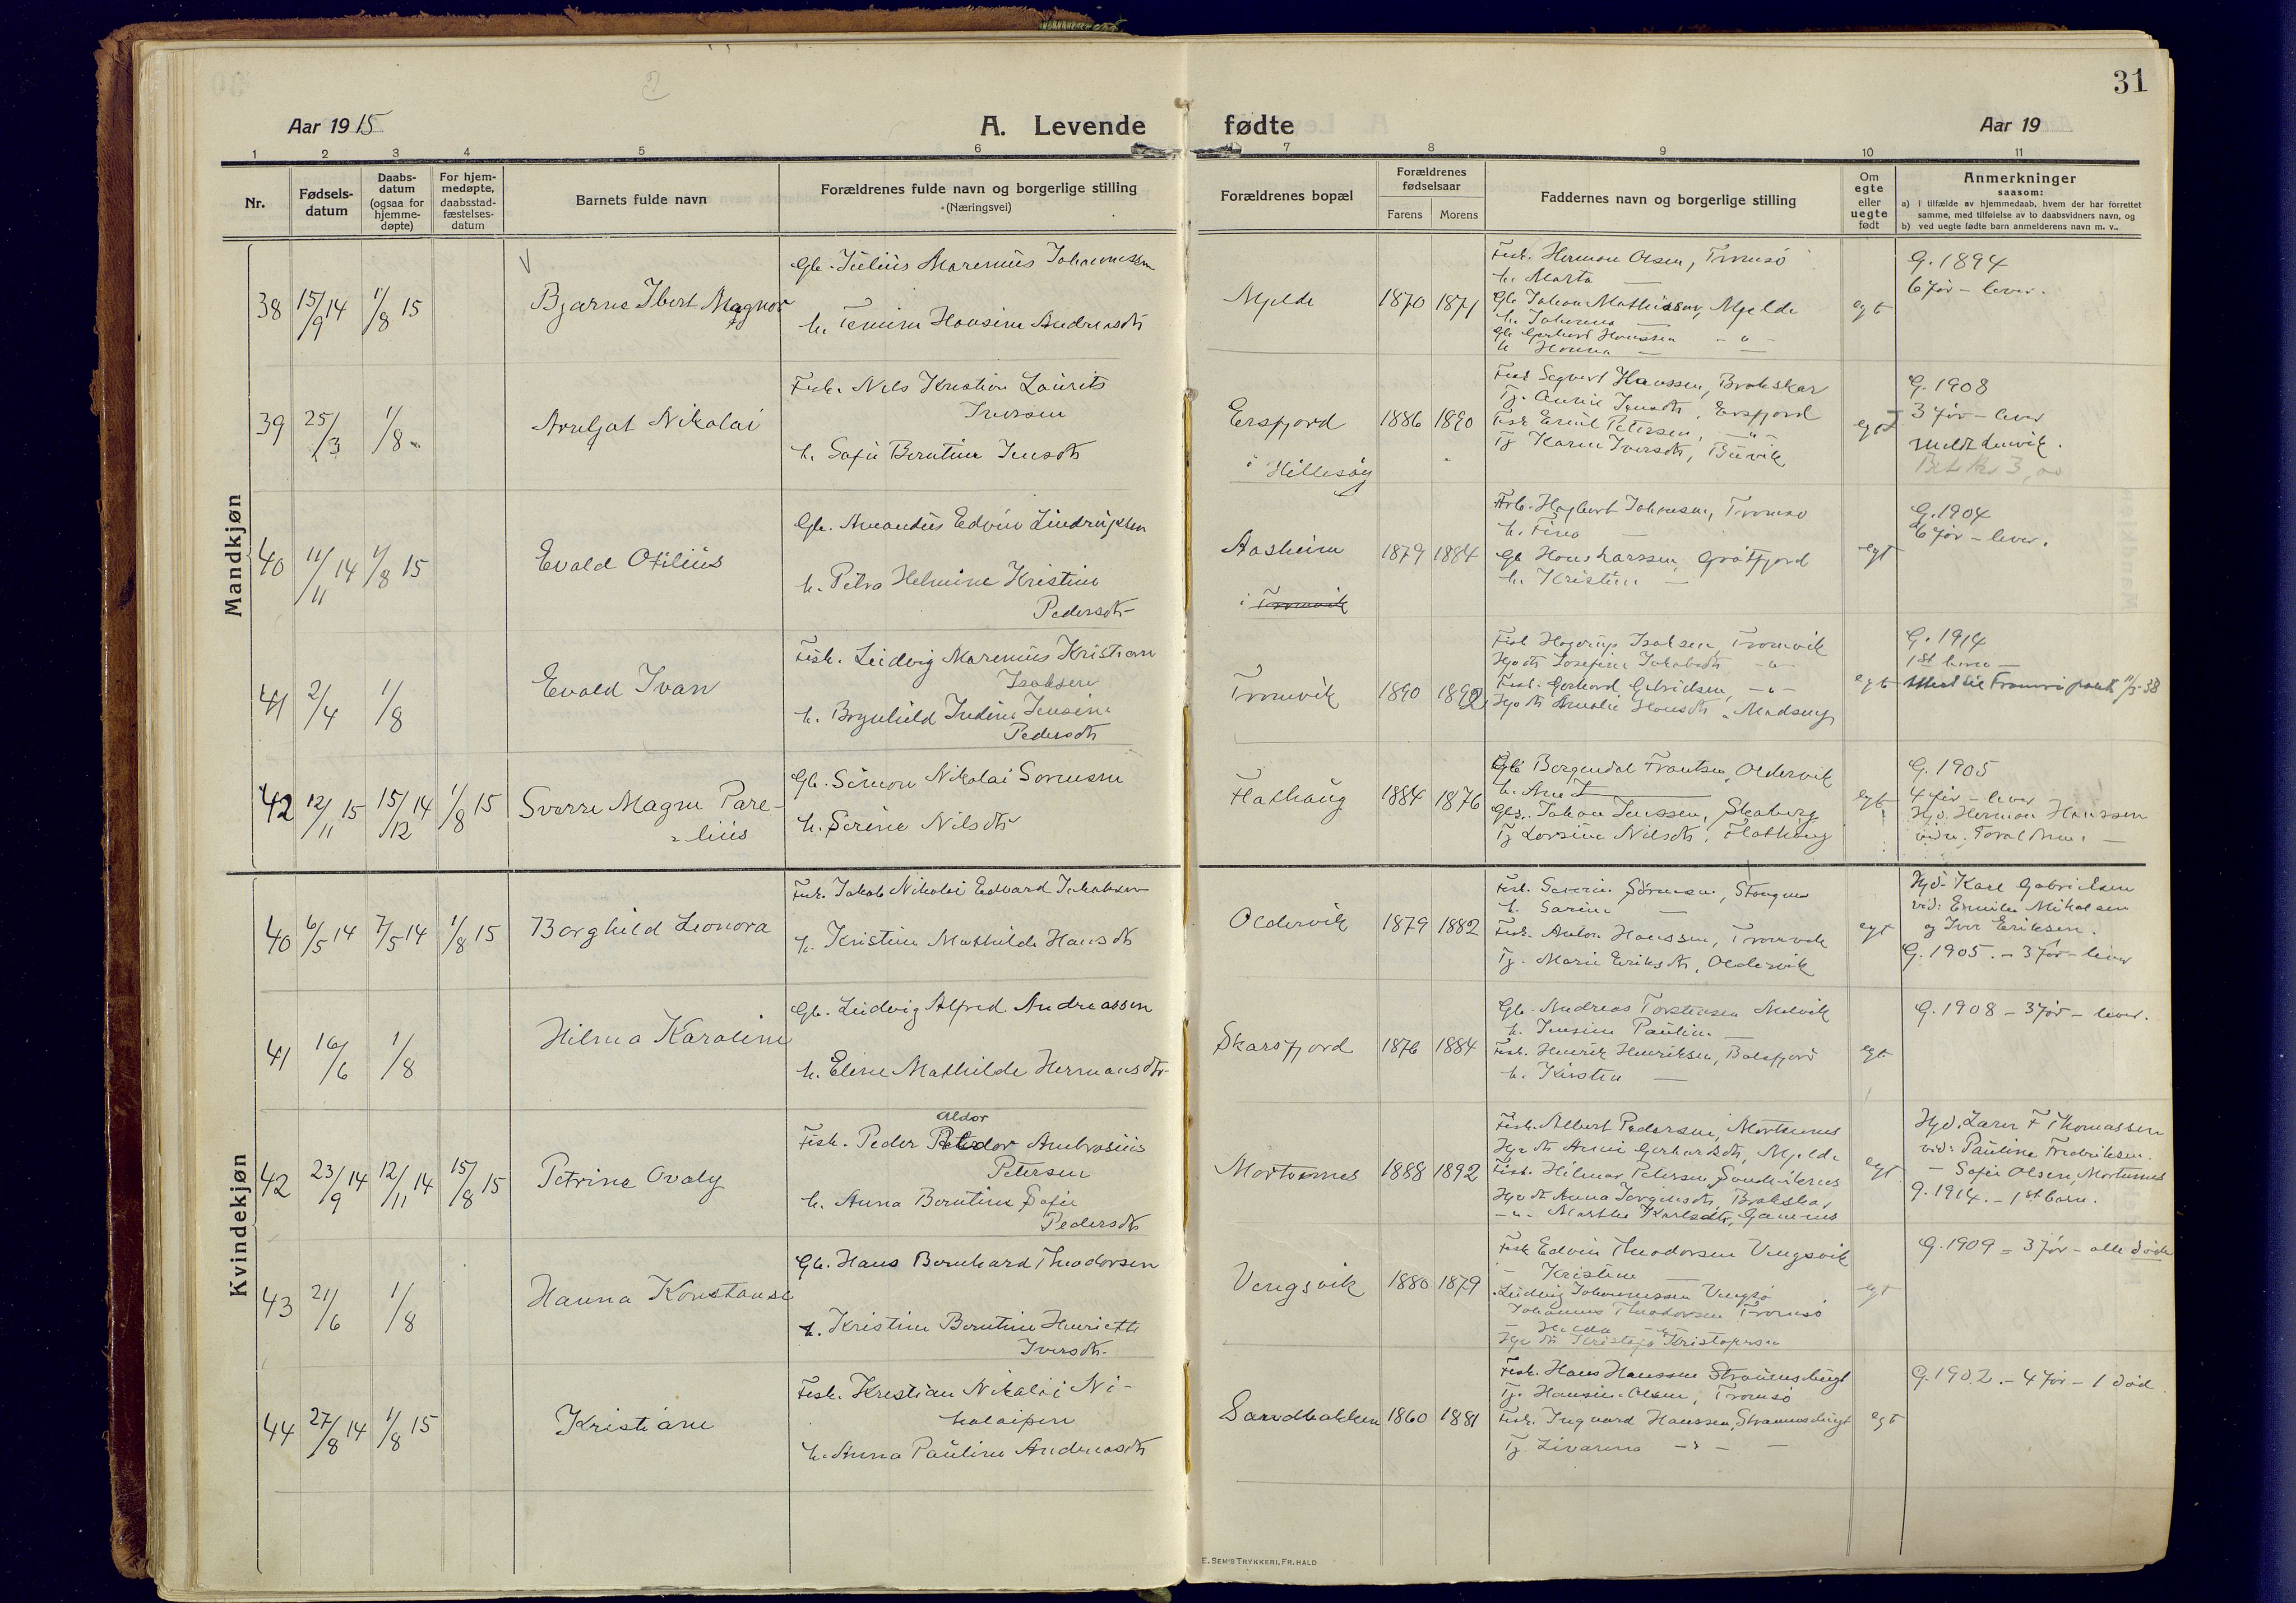 31
Aar 1915
A. Levende fødte
Aar 19
1 2 3 4 5 6 7 8 9 10 11
Nr.
Fødsels-
datum
Daabs-
datum
(ogsaa for
hjemme-
døpte)
For hjem-
medøpte,
daabsstad-
fæstelses-
datum
Barnets fulde navn
Forældrenes fulde navn og borgerlige stilling
(Næringsvei)
Forældrenes bopæl
Forældrenes
fødselsaar
Farens Morens
Faddernes navn og borgerlige stilling
Om
egte
eller
uegte
født
Anmerkninger
saasom:
a) i tilfælde av hjemmedaab, hvem der har forrettet
samme, med tilføielse av to daabsvidners navn, og
b) ved uegte fødte barn anmelderens navn m. v..
Mandkjøn
38 15/9 14 1/8 15
Bjarne Ibert Magnor
Gb. Julius Marenius Johannessen
h. Hansine Andreasdtr
Mjelde 1870 1871
Fisk. Herman Olsen, Tromsø
h. Marta —
Gb Johan Mathiassen, Mjelde
h. Johanna —
Gb Gerhard Hanssen - " -
h Hanna — —
egt
G. 1894
6 før - lever.
39 25/3 1/8
Arnljot Nikolai
Fisk. Nils Kristian Laurits
Iversen
h. Sofie Berntine Jensdtr
Ersfjord
i Hillesøy
1886 1890
Fisk Segbert Hanssen, Brokskar
Tj. Jensdtr, Ersfjord
Fisk Emil Petersen, - " -
Tj Karen Iversdtr, Buvik
egt
G. 1908
3 før - lever
Meldt Lenvik.
40 11/11 14 1/8 15
Evald Otilius
Gb. Amandus Edvin Lindrupsen
h. Petra Helmine Kristine
Pedersdtr
Aasheim
i Tromvik
1879 1884
Arb. Hagbart Johansen, Tromsø
h. Fina —
Gb Hans Larssen, Grøtfjord
h. Kristine —
egt
G. 1904
6 før - lever.
41 2/4 1/8
Evald Ivan
Fisk. Ludvig Marenius Kristian
Isaksen
h. Brynhild Indine Jensine
Pedersdtr
Tromvik 1890 1892
Fisk Isaksen, Tromvik
Josefine Jakobsdtr - " -
Fisk. Gerhard Gabrielsen, - " -
Amalie Hansdtr
egt
G. 1914
1st barn —
42 12/11 15 15/12 14 1/8 15
Sverre Magne Pare-
- lius
Gb. Simon Nikolai Sørensen
h. Serine Nilsdtr
Flathaug 1884 1876
Gb Borgendal Frantsen, Oldervik
Johan Jenssen, Skaberg
Tj Lovsine Nilsdtr, Flathaug
egt
G. 1905
4 før - lever
Hjd. Herman Hanssen
Kvindekjøn
40 6/5 14 7/5 14 1/8 15
Borghild Leonora
Fisk. Jakob Nikolai Edvard Jakobsen
h. Kristine Mathilde Hansdtr
Oldervik 1879 1882
Fisk. Severin Sørensen,
h. Sarine —
Fisk. Anton Hanssen, Tromvik
Tj. Marie Eriksdtr, Oldervik
egt
Hjd. Karl Gabrielsen
vid: Emilie Mikalsen
og Iver Eriksen.
G. 1905. - 3 før - lever
41 16/6 1/8
Hilma Karoline
Gb. Ludvig Alfred Andreassen
h. Eline Mathilde Hermansdtr
Skarsfjord 1876 1884
Gb. Andreas Torstensen
h. Jensine Pauline
Fisk. Henrik Henriksen, Balsfjord
h. Kirsten —
egt
G. 1908 - 3 før - lever.
42 23/9 14 12/11 14 15/8 15
Petrine Ovaly
Aldor
Fisk. Peder Ambrosius
Petersen
h. Anna Berntine Sofie
Pedersdtr
Mortensnes 1888 1892
Fisk. Albert Pedersen, Mortensnes
Gerhardsdtr, Mjelde
Fisk. Hilmar Petersen,
Anna Jørgensdtr, Brokskar
- " - Marthe Karlsdtr,
egt
Hjd. Larer F Thomassen
vid: Pauline Fredriksen.
— Sofie Olsen, Mortensnes
G. 1914. - 1st barn.
43 21/6 1/8
Hanna Konstanse
Gb. Hans Bernhard Theodorsen
h. Kristine Berntine Henriette
Iversdtr.
Vengsvik 1880 1879
Fisk Edvin Theodorsen Vengsvik
- Kristine —
Ludvig Johannessen Vengsø
Johannes Theodorsen Tromsø
egt
G. 1909 - 3 før - alle døde
44 27/8 14 1/8 15
Kristiane
Fisk. Kristian Nikolai Ni-
kolaisen
h. Anna Pauline Andreasdtr
Sandbakken 1860 1881
Fisk. Hans Hanssen Straumsbugt
Tj. Hansine Olsen, Tromsø
Fisk. Ingvard Hanssen, Straumsbugt
egt
G. 1902. - 4 før - 1 død
E. SEM'S TRYKKERI, FR.HALD